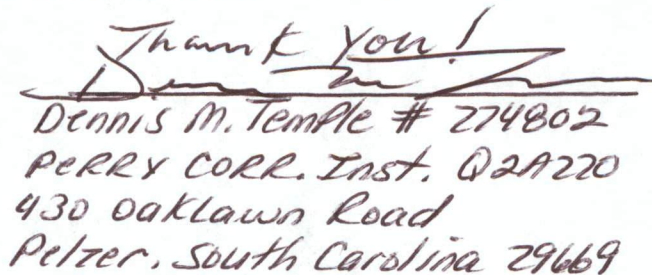 Thank You!
Dennis M. Temple # 274802
PERRY CORR. Inst. Q2A220
430 Oaklawn Road
Pelzer, South Carolina 29669